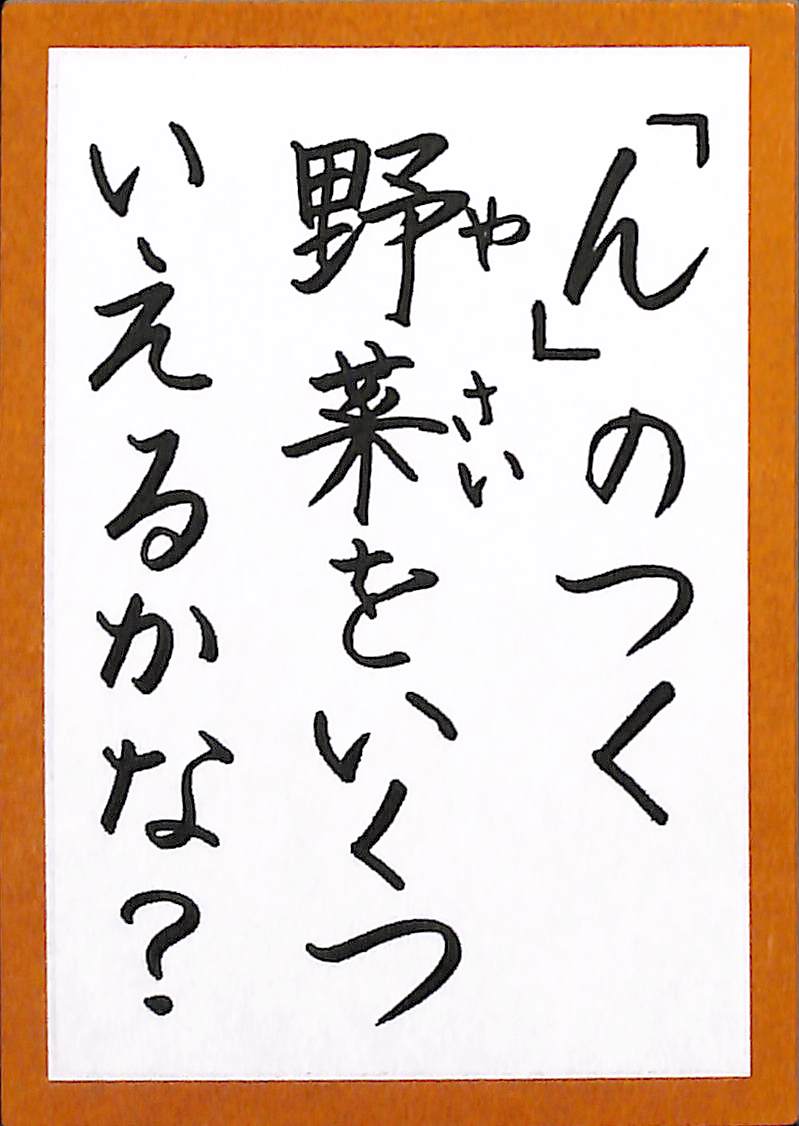 「ん」のつく
野菜をいくつ
やさい
いえるかな？